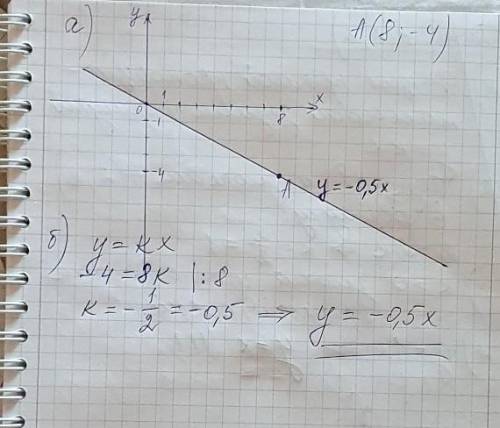 а)
A(8;-4)
y
x
0
1
-1
8
-4
A
y=-0,5x
б)
y=кx
-4=8к |:8
к=-1/2=-0,5 ⇒ y=-0,5x